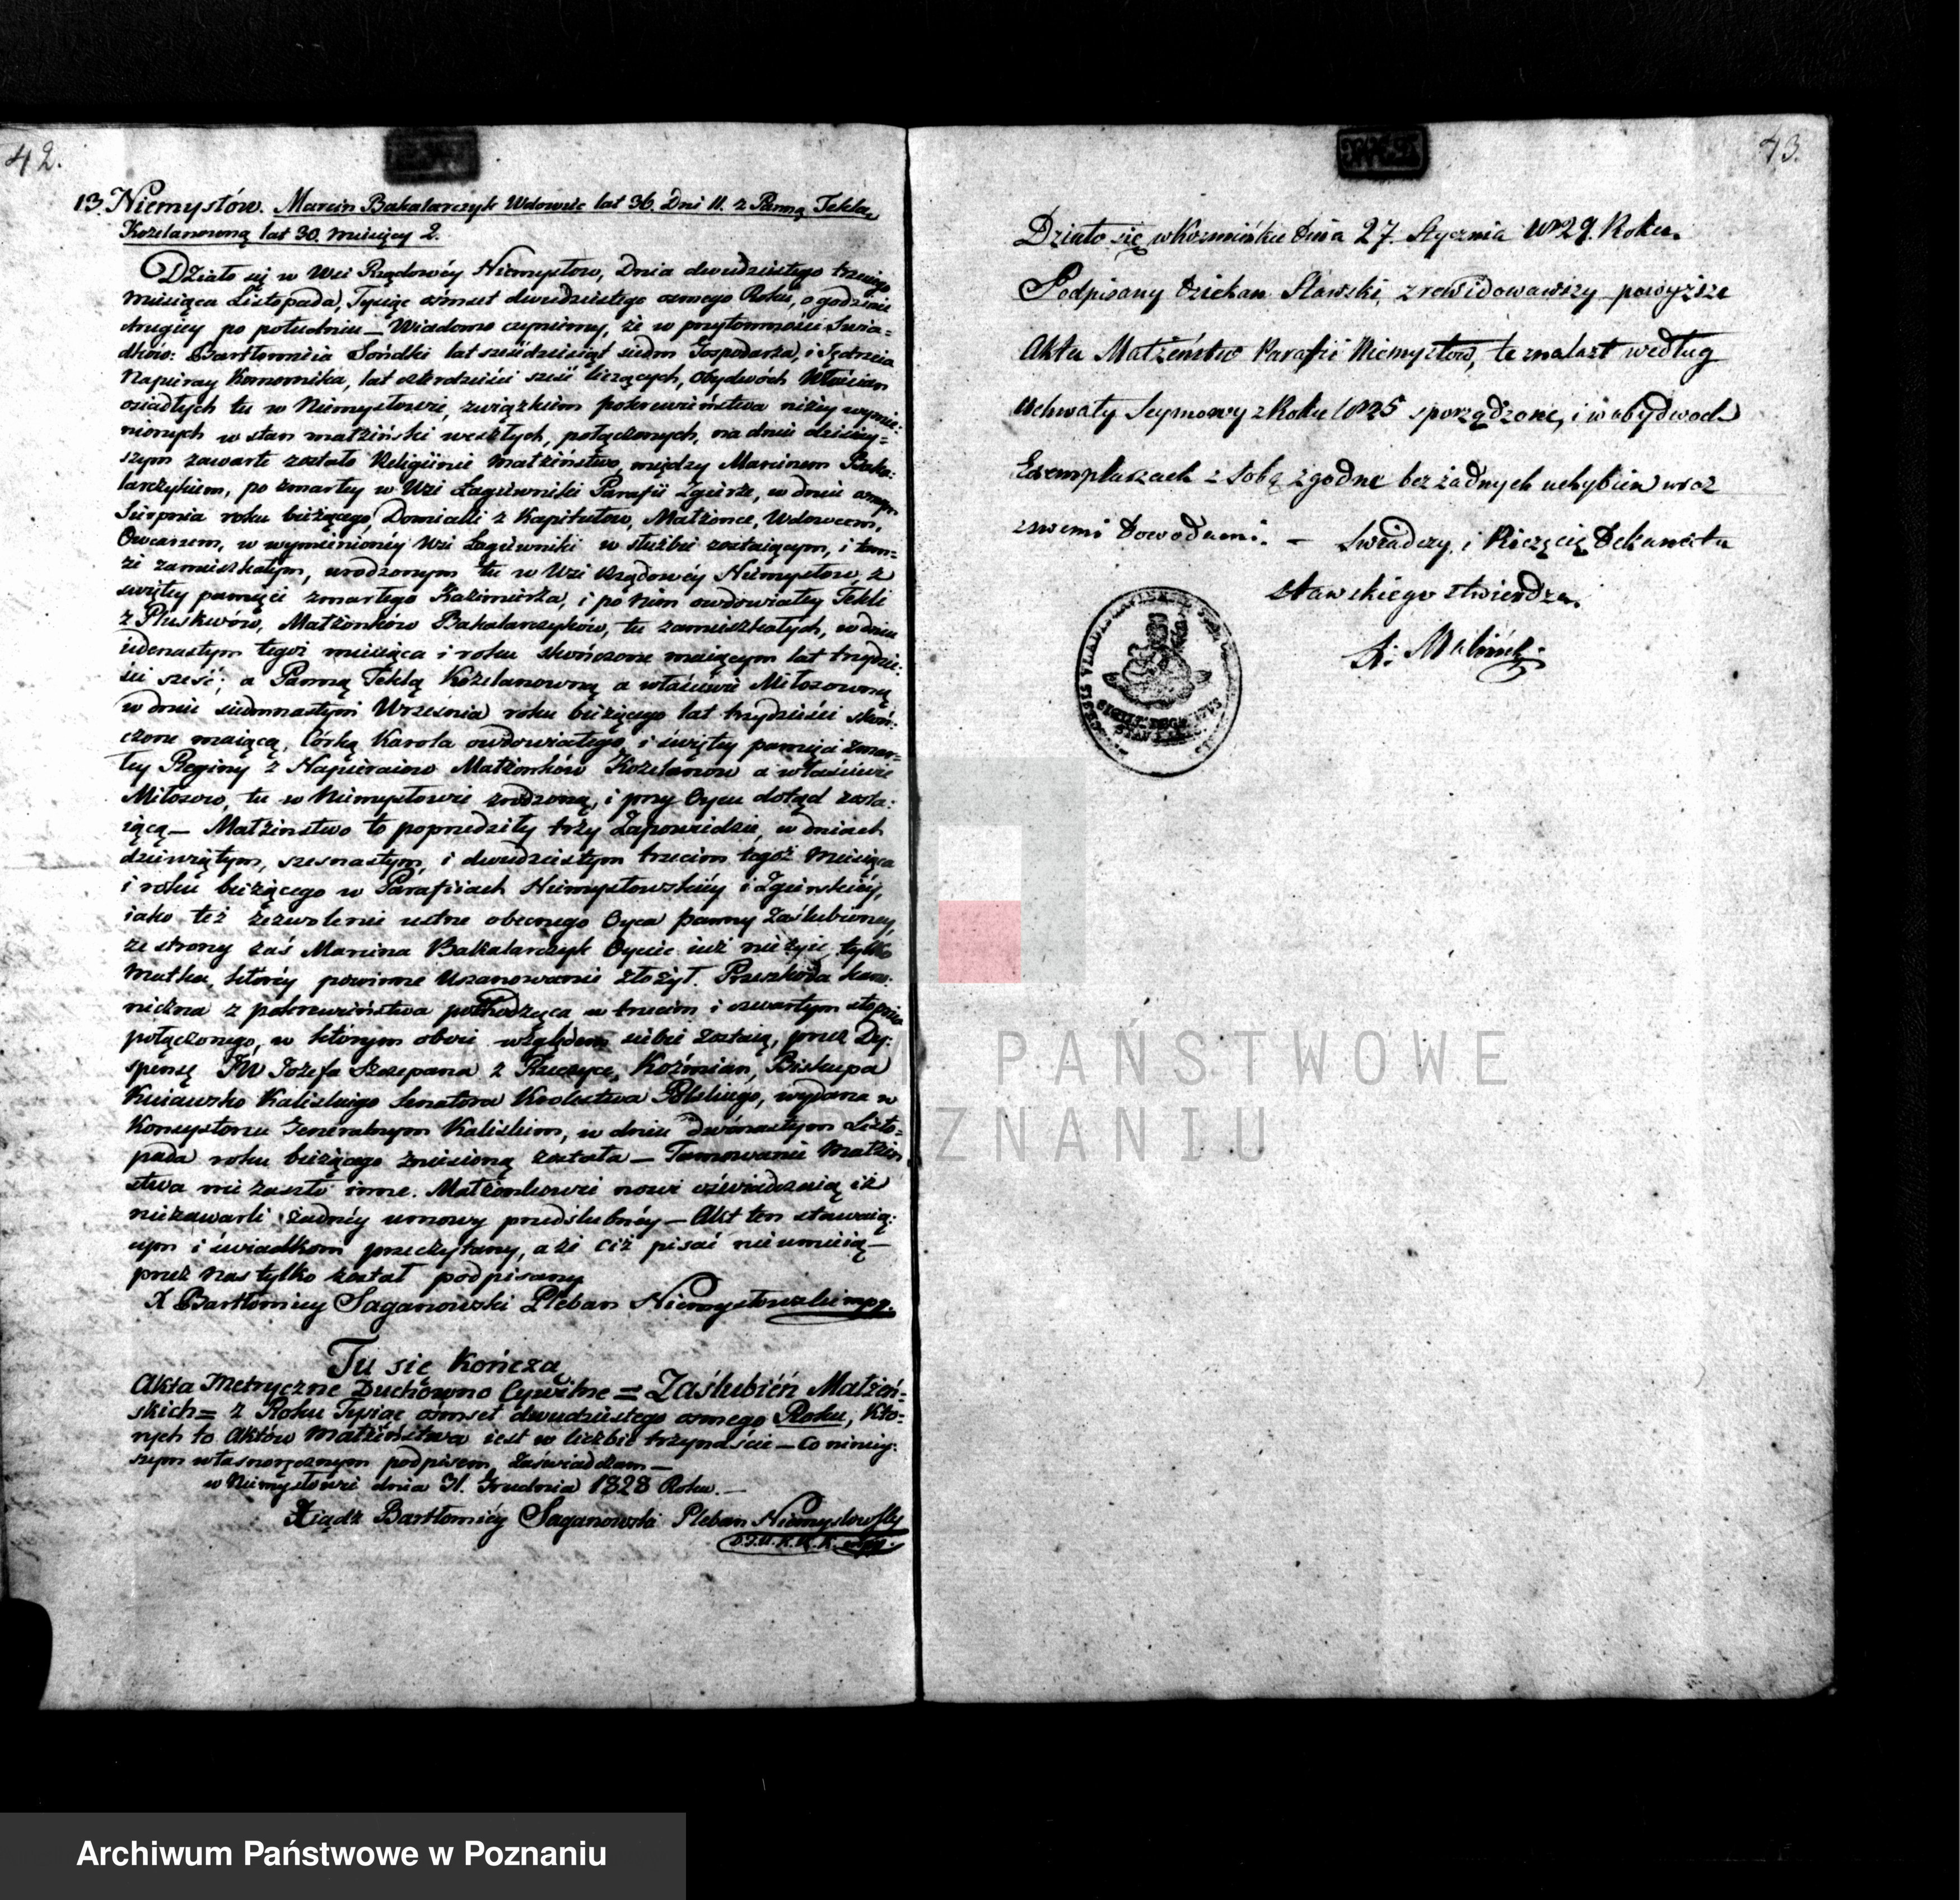 42.
13. Niemysłów. Marcin Bakalarczyk Wdowiec lat 36. Dni 11. z Panną Teklą
Kozelanowną lat 30. miesięcy 2.
Działo się w Wsi Rządowéy Niemysłow, Dnia dwudziestego trzeciego
miesiąca Listopada, Tysiąc osmset dwudziestego osmego Roku, o godzinie
drugiey po południu — Wiadomo czyniemy, że w przytomności Swia-
dków: Bartłomieia Sońdki lat sześćdziesiąt siedm Gospodarza, i Jędrzeia
Napieray Komornika, lat czterdzieści sześć liczących, obydwóch Włościan
osiadłych tu w Niemysłowie, związkiem pokrewieństwa niżey wymie-
nionych w stan małżeński weszłych, połączonych, na dniu dzisiey-
szym zawarte zostało Religiine małżeństwo, między Marcinem Baka-
larczykiem, po zmarłey w Wsi Łagiewniki Parafii Zgierz, w dniu osmym
Sierpnia roku bieżącego, Domicelli z Kapitułow, Małżonce, Wdowcem,
Owcarzem, w wymienionéy Wsi Łagiewniki w służbie zostaiącym, i tam-
że zamieszkałym, urodzonym tu w Wsi Rządowéy Niemysłow, z
święty pamięci zmarłego Kazimierza, i po nim owdowiałey Tekli
z Pluskwów, Małżonków Bakalarczyków, tu zamieszkałych, w dniu
iedenastym tegoż miesiąca i roku skończone maiącym lat trzydzie-
ści sześć; a Panną Teklą Kozelanowną a właściwie Miłoszowną
w dniu siedmnastym Wrzesnia roku bieżącego lat trzydzieści skoń-
czone maiącą, Córką Karola owdowiałego, i święty pamięci zmar-
łey Reginy z Napieraiow Małżonków Kozelanow a właściwie
Miłoszow, tu w Niemysłowie zrodzoną, i przy Oycu dotąd zosta-
iącą — Małżeństwo to poprzedziły trzy Zapowiedzie, w dniach
dziewiątym, szesnastym, i dwudziestym trzecim tegoż miesiąca
i roku bieżącego w Parafiiach Niemysłowskiéy i Zgierskiéy,
iako też zezwolenie ustne obecnego Oyca panny Zaślubioney,
ze strony zaś Marcina Bakalarczyk Oyciec iuż nieżyie tylko
matka, któréy powinne uszanowanie złożył. Przeszkoda kano-
niczna z pokrewieństwa pochodząca w trzecim i czwartym stopniu
połączonego, w którym oboie względem siebie zostaią, przez Dy-
spensę JW Józefa Szczepana z Rzeczyce, Koźmian, Biskupa
Kuiawsko Kaliskiego Senatora Krolestwa Polskiego, wydana w
Konsystorzu Generalnym Kaliskim, w dniu dwónastym Listo-
pada roku bieżącego zniesioną została — Tamowanie małżeń
stwa nie zaszło inne. Małżonkowie nowi oświadczaią iż
niezawarli żadnéy umowy przedślubnéy — Akt ten stawaią-
cym i świadkom przeczytany, a że ciż pisać nieumieią —
przez nas tylko został podpisany
X Bartłomiey Saganowski Pleban Niemysłowski mpp.
Tu się Kończą
Akta Metryczne Duchowno Cywilne = Zaślubień Małżeń-
skich = z Roku Tysiąc ośmset dwudziestego osmego Roku, któ-
rych to Aktów małżeństwa iest w liczbie trzynaście — Co niniey-
szym własnoręcznym podpisem zaświadczam —
w Niemysłowie dnia 31. Grudnia 1828 Roku. —
Xiądz Bartłomiéy Saganowski Pleban Niemysłowsky
73.
Działo się w Kozminku Dnia 27. Stycznia 1829. Roku.
Podpisany Dziekan Stawski, zrewidowawszy powyższe
Akta Małżeństw Parafii Niemysłow, te znalazł według
Uchwały Seymowy z Roku 1825 sporządzone, i w obydwoch
Exemplarzach z sobą zgodne bez żadnych uchybien wraz
z swemi Dowodami. — Swiadczy i Pieczęcią Dekanatu
Stawskiego stwierdza.
ARCHIWUM PAŃSTWOWE
W POZNANIU
Archiwum Państwowe w Poznaniu